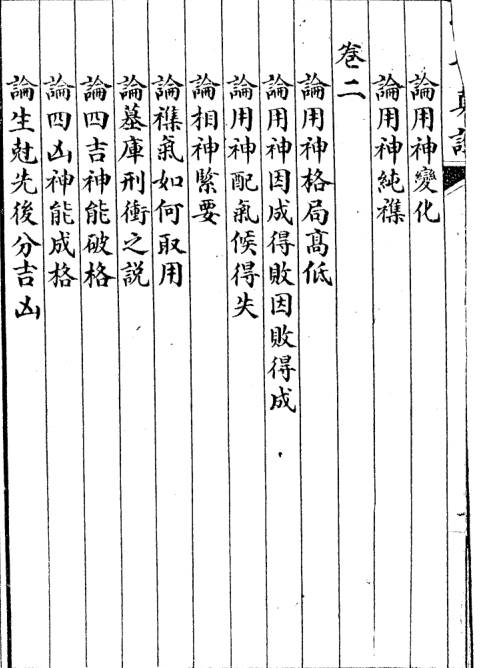 論用神變化
論用神純襍
卷二
論用神格局髙低
論用神因成得敗因敗得成
論用神配氣候得失
論相神緊要
論襍氣如何取用
論墓庫刑衝之説
論四吉神能破格
論四凶神能成格
論生尅先後分吉凶